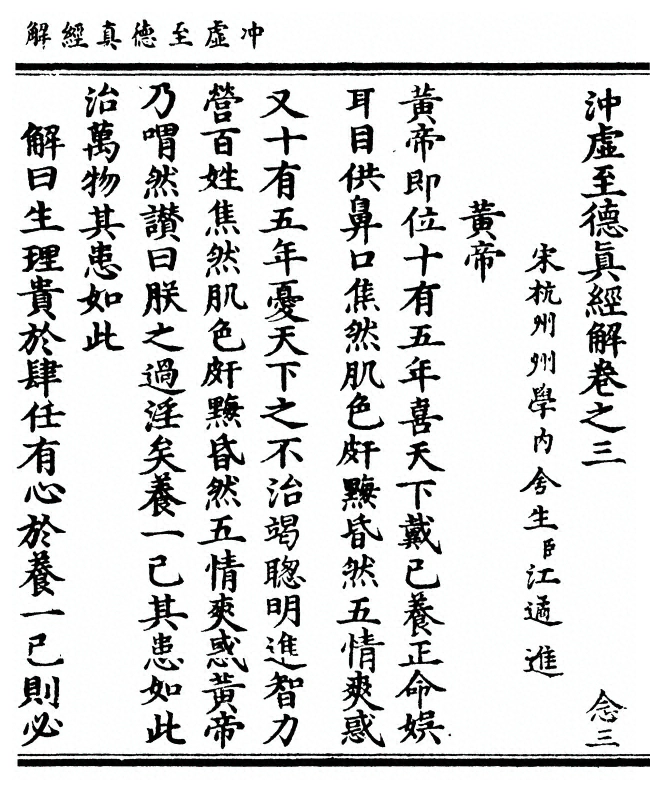 冲虛至德真經解
沖虛至德眞經解卷之三
念三
宋杭州州學內舍生臣江遹進
黃帝
黃帝即位十有五年喜天下戴己養正命娛
耳目供鼻口焦然肌色皯黣昏然五情爽惑
又十有五年憂天下之不治竭聰明進智力
營百姓焦然肌色皯黣昏然五情爽惑黃帝
乃喟然讃曰朕之過淫矣養一己其患如此
治萬物其患如此
解曰生理貴於肆任有心於養一己則必